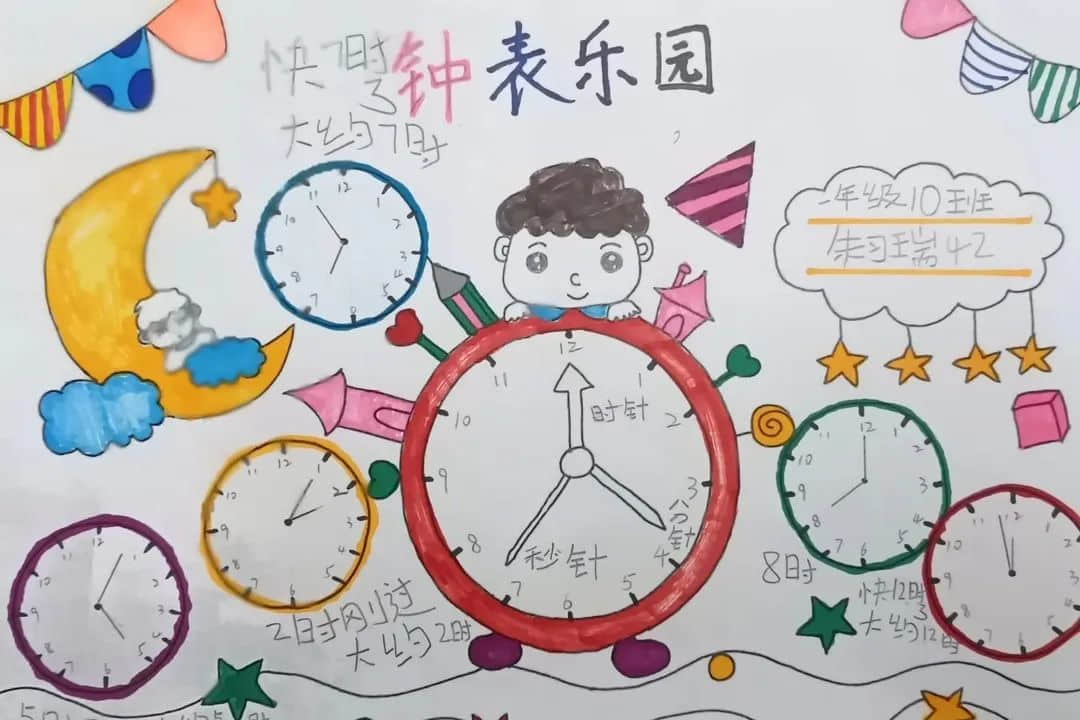 钟表乐园
快7时了
大约7时
一年级10班
朱习瑞42
12
1
2
3
4
5
6
7
8
9
10
11
时针
分针
秒针
2时刚过
大约2时
8时
快12时了
大约12时